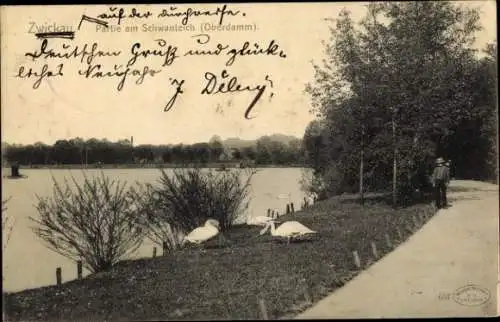 Zwickau auf der durchreise.
Partie am Schwanteich (Oberdamm).
Deutschen Gruß und glück-
liches Neujahr